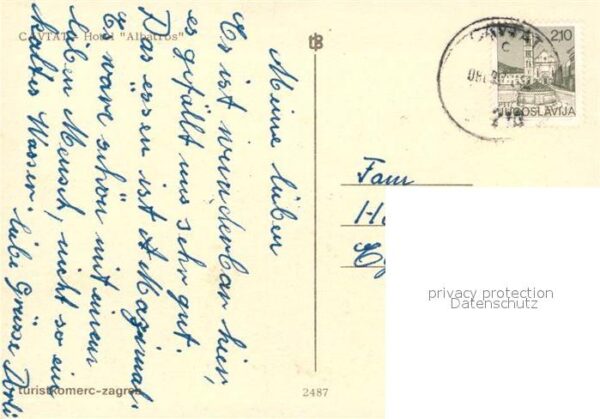 CAVTAT - Hotel "Albatros"
Meine lieben
Es ist wunderbar hier,
es gefällt uns sehr gut.
Das essen ist A Maximal.
Es wäre schön mit einem
lieben Mensch, nicht so ein
kaltes Wasser. liebe Grüsse
turistkomerc-zagreb
2487
CAVTAT
210
JUGOSLAVIJA
Fam
privacy protection
Datenschutz